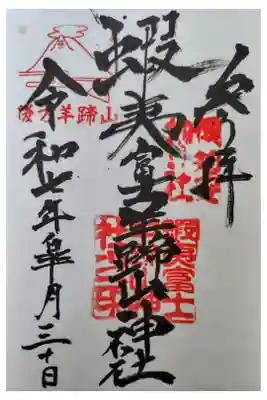 奉拝
蝦夷富士羊蹄山神社
令和七年皐月三十日
後方羊蹄山
蝦夷富士
羊蹄山神
社之印